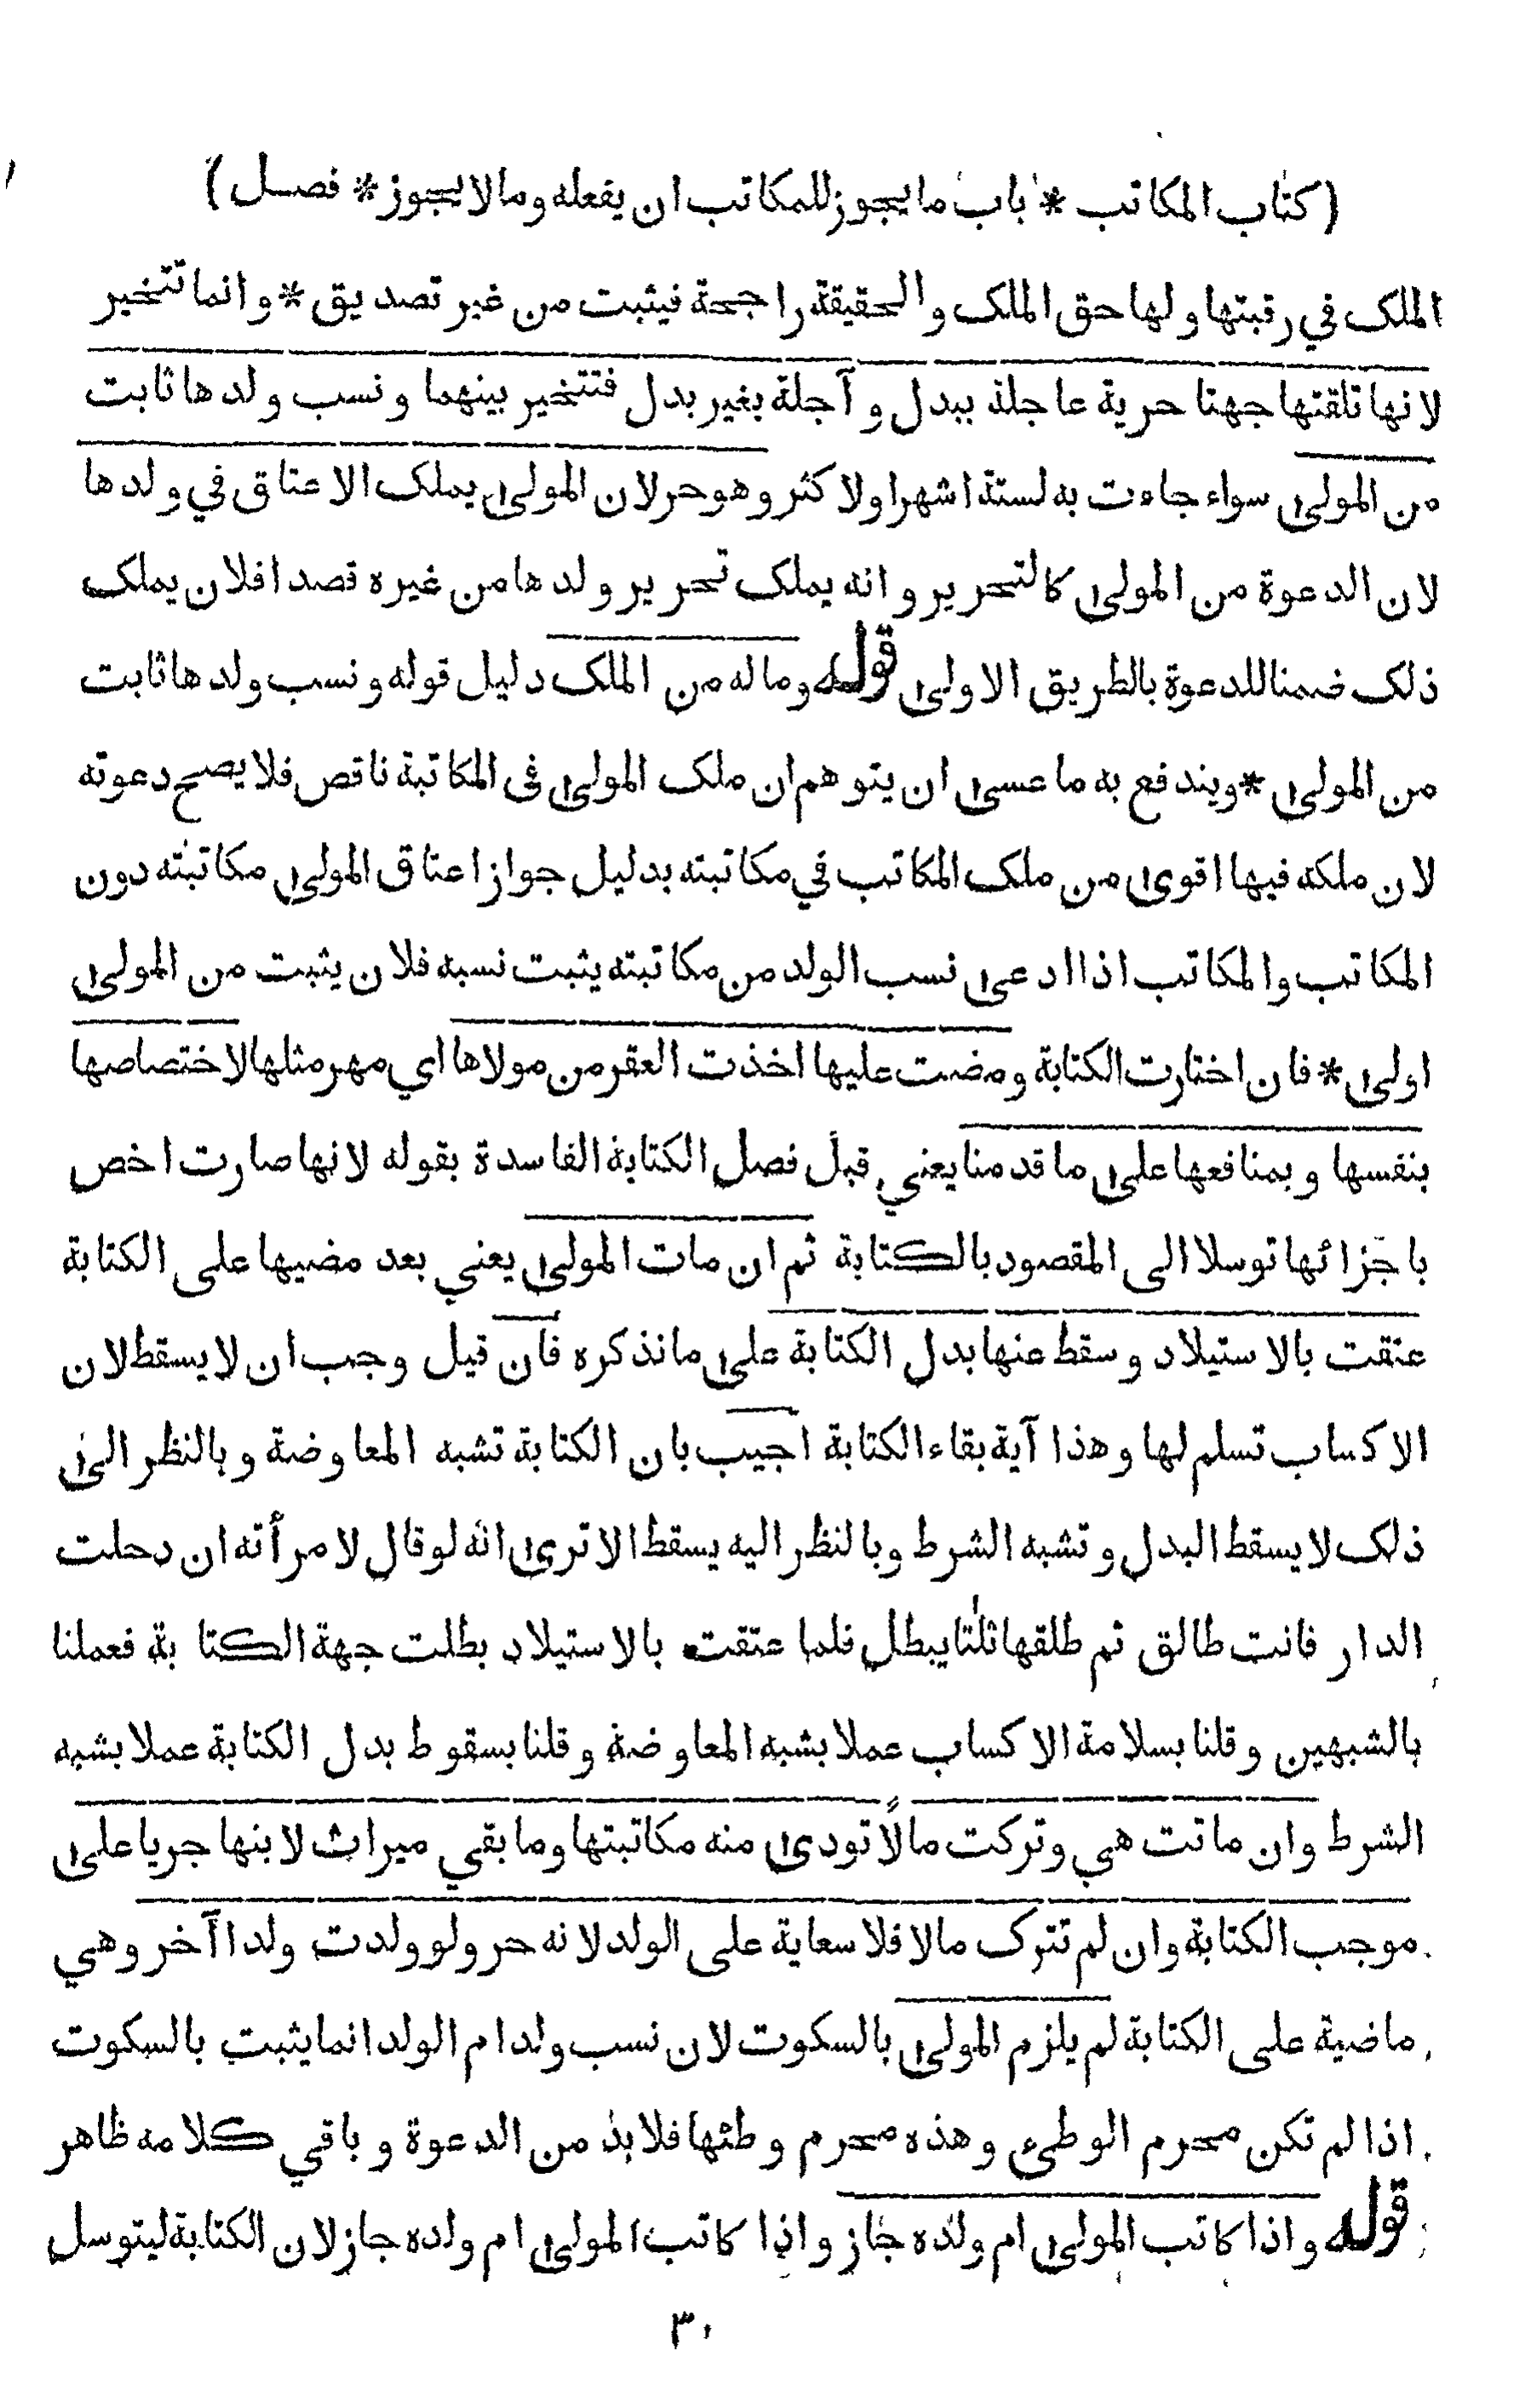 ( كتاب المكاتب * باب ما يجوز للمكاتب ان يفعله وما لا يجوز * فصل )
الملك في رقبتها ولها حق الملك والحقيقة راجحة فيثبت من غير تصديق * وانما تتخير
لانها تلقتها جهتا حرية عاجلة ببدل وآجلة بغير بدل فتتخير بينهما ونسب ولدها ثابت
من المولى سواء جاءت به لستة اشهر اولاكثر وهو حر لان المولى يملك الاعتاق في ولدها
لان الدعوة من المولى كالتحرير وانه يملك تحرير ولدها من غيره قصدا فلان يملك
ذلك ضمنا للدعوة بالطريق الاولى قوله وما له من الملك دليل قوله ونسب ولدها ثابت
من المولى * ويندفع به ما عسى ان يتوهم ان ملك المولى فى المكاتبة ناقص فلا يصح دعوته
لان ملكه فيها اقوى من ملك المكاتب في مكاتبته بدليل جواز اعتاق المولى مكاتبته دون
المكاتب والمكاتب اذا ادعى نسب الولد من مكاتبته يثبت نسبه فلان يثبت من المولى
اولى * فان اختارت الكتابة ومضت عليها اخذت العقر من مولاها اي مهر مثلها لاختصاصها
بنفسها وبمنافعها على ما قدمنا يعني قبل فصل الكتابة الفاسدة بقوله لانها صارت اخص
باجزائها توسلا الى المقصود بالكتابة ثم ان مات المولى يعني بعد مضيها على الكتابة
عتقت بالاستيلاد وسقط عنها بدل الكتابة على ما نذكره فان قيل وجب ان لا يسقط لان
الاكساب تسلم لها وهذا آية بقاء الكتابة اجيب بان الكتابة تشبه المعاوضة وبالنظر الى
ذلك لا يسقط البدل وتشبه الشرط وبالنظر اليه يسقط الا ترى انه لو قال لامرأته ان دخلت
الدار فانت طالق ثم طلقها ثلثا يبطل فلما عتقت بالاستيلاد بطلت جهة الكتابة فعملنا
بالشبهين وقلنا بسلامة الاكساب عملا بشبه المعاوضة وقلنا بسقوط بدل الكتابة عملا بشبه
الشرط وان ماتت هي وتركت مالًا تودى منه مكاتبتها وما بقي ميراث لابنها جريا على
موجب الكتابة وان لم تترك مالا فلا سعاية على الولد لانه حر ولو ولدت ولدا آخر وهي
ماضية على الكتابة لم يلزم المولى بالسكوت لان نسب ولد ام الولد انما يثبت بالسكوت
اذا لم تكن محرم الوطىء وهذه محرم وطئها فلا بد من الدعوة وباقي كلامه ظاهر
قوله واذا كاتب المولى ام ولده جاز واذا كاتب المولى ام ولده جاز لان الكتابة ليتوسل
٣٠